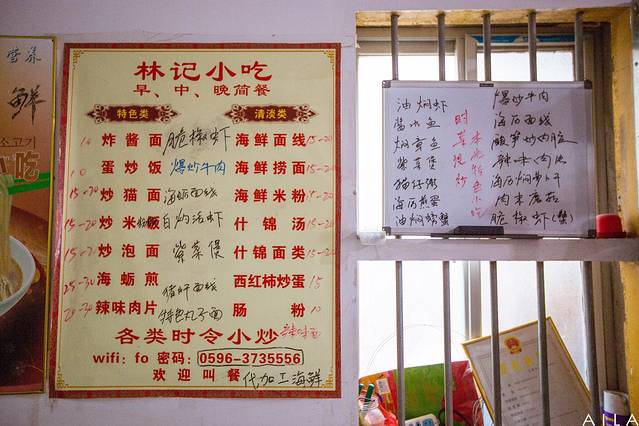 营养
鲜
小吃
林记小吃
早、中、晚简餐
特色类
清淡类
炸酱面
脆椒虾
海鲜面线 15-20
10 蛋炒饭
爆炒牛肉
海鲜捞面 15-20
15-20 炒猫面
海蛎面线
海鲜米粉
15-20 炒米粉
白灼活虾
什锦汤 15-20
炒泡面
紫菜煲
什锦面类
25-30 海蛎煎
猪肝面线
西红柿炒蛋 15
辣味肉片
特色丸子面
肠粉 10
各类时令小炒
辣味面
wifi: fo 密码: 0596-3735556
欢迎叫餐
代加工海鲜
油焖虾
酱油鱼
焖章鱼
紫菜煲
猫仔粥
海历煎蛋
油焖螃蟹
时菜现炒
本地特色小吃
爆炒牛肉
海历面线
酸笋炒肉
海历焖萝卜干
肉末蘑菇
脆椒虾(蟹)
AILA